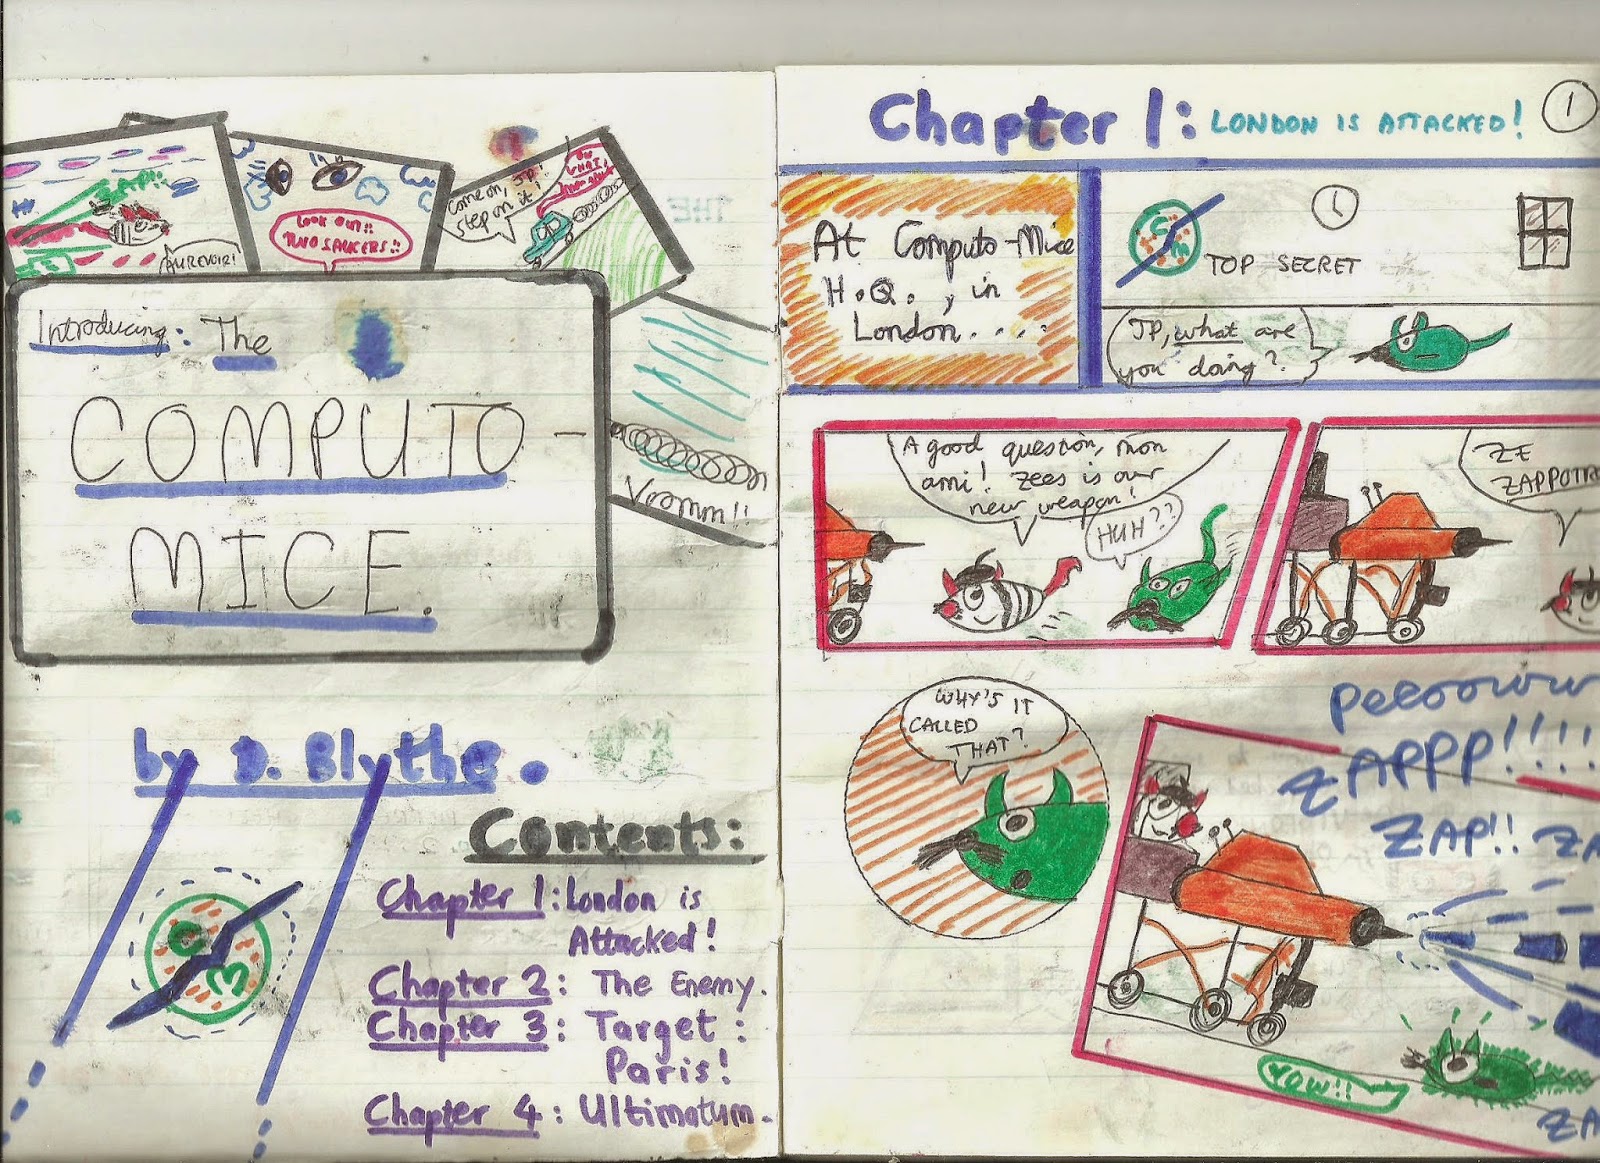 ZAP!!
AU REVOIR!
Look out!!
TWO SAUCERS!!
Come on, JP!
step on it!
Introducing: The
COMPUTO-
MICE.
Vromm!!
by D. Blythe.
Contents:
Chapter 1: London is
Attacked!
Chapter 2: The Enemy.
Chapter 3: Target:
Paris!
Chapter 4: Ultimatum.
C
M
THE
Chapter 1: LONDON IS ATTACKED!
1
At Computo-Mice
H.Q., in
London....
C
M
TOP SECRET
JP, what are
you doing?
A good question, mon
ami! Zees is our
new weapon!
HUH??
ZE
WHY'S IT
CALLED
THAT?
ZAPPP!!!!
ZAP!!
YOW!!